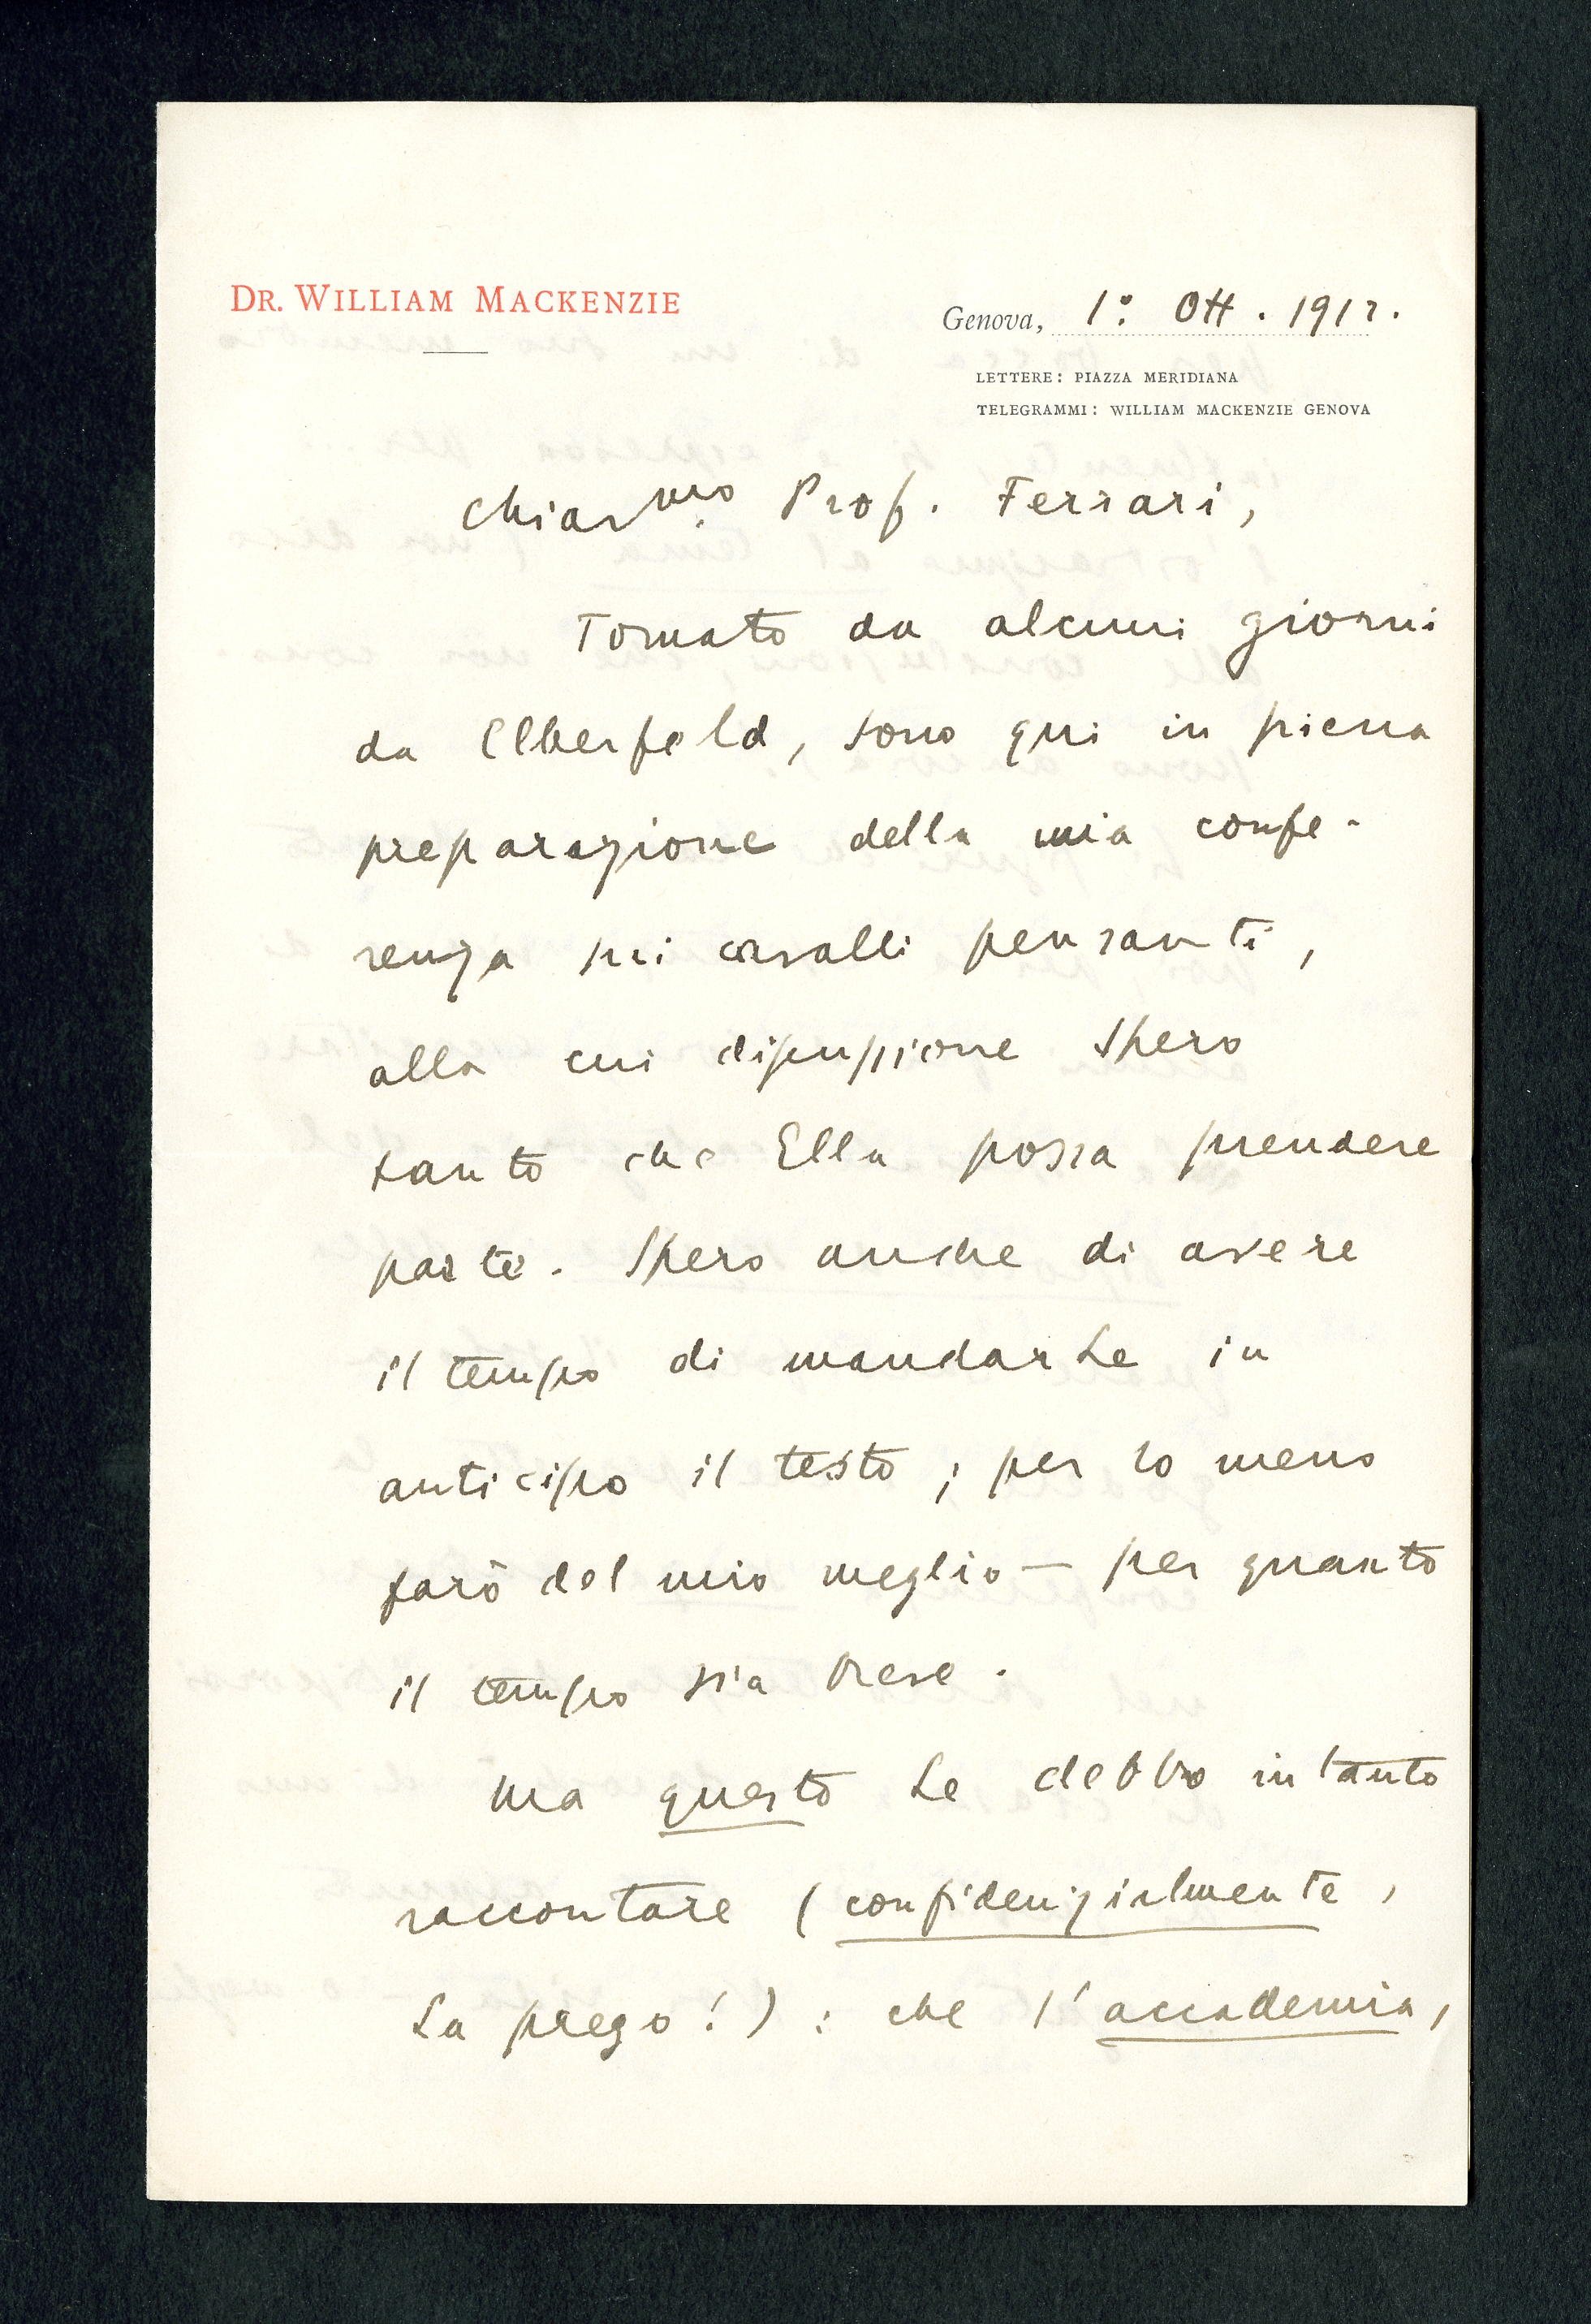 DR. WILLIAM MACKENZIE
Genova, 1º. Ott. 1912.
LETTERE: PIAZZA MERIDIANA
TELEGRAMMI: WILLIAM MACKENZIE GENOVA
Chiarmo. Prof. Ferrari,
Tornato da alcuni giorni
da Elberfeld, sono qui in piena
preparazione della mia confe-
renza sui cavalli pensanti,
alla cui discussione spero
tanto che Ella possa prendere
parte. Spero anche di avere
il tempo di mandarLe in
anticipo il testo; per lo meno
farò del mio meglio — per quanto
il tempo sia breve.
Ma questo Le debbo intanto
raccontare (confidenzialmente,
La prego!): che l'accademia,